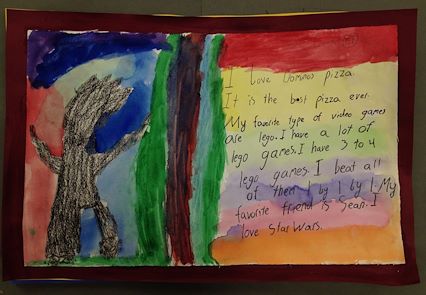 I love Dominos pizza.
It is the best pizza ever.
My favorite type of video games
are lego. I have a lot of
lego games. I have 3 to 4
lego games. I beat all
of them 1 by 1 by 1. My
favorite friend is Sean. I
love Star Wars.